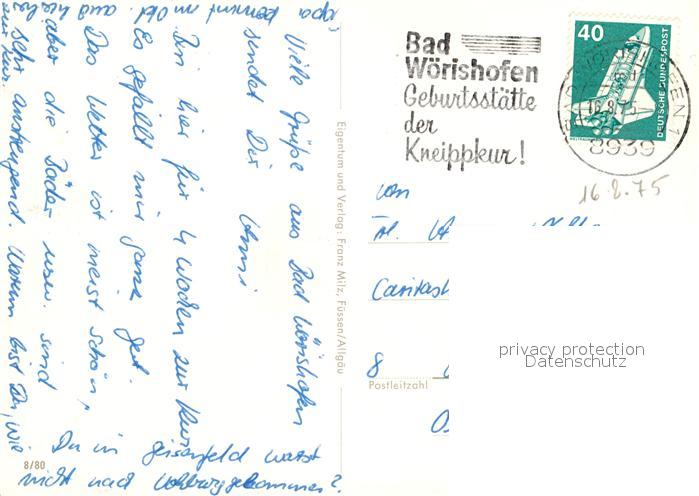 Opa kommt im Okt. aus hier
zur Kur.
Viele Grüße aus Bad Wörishofen
sendet Dir
Bin hier für 4 Wochen zur Kur.
Es gefällt mir ganz gut.
Das Wetter ist meist schön,
aber die Bäder usw. sind
sehr anstrengend. Warum bist Du, wie
Du in Geisenfeld warst
nicht nach Vohburg gekommen?
8/80
Eigentum und Verlag: Franz Milz, Füssen/Allgäu
Bad
Wörishofen
Geburtsstätte
der
Kneippkur!
40
DEUTSCHE BUNDESPOST
16.8.75
8939
16.8.75
Caritas
8
Postleitzahl
privacy protection
Datenschutz